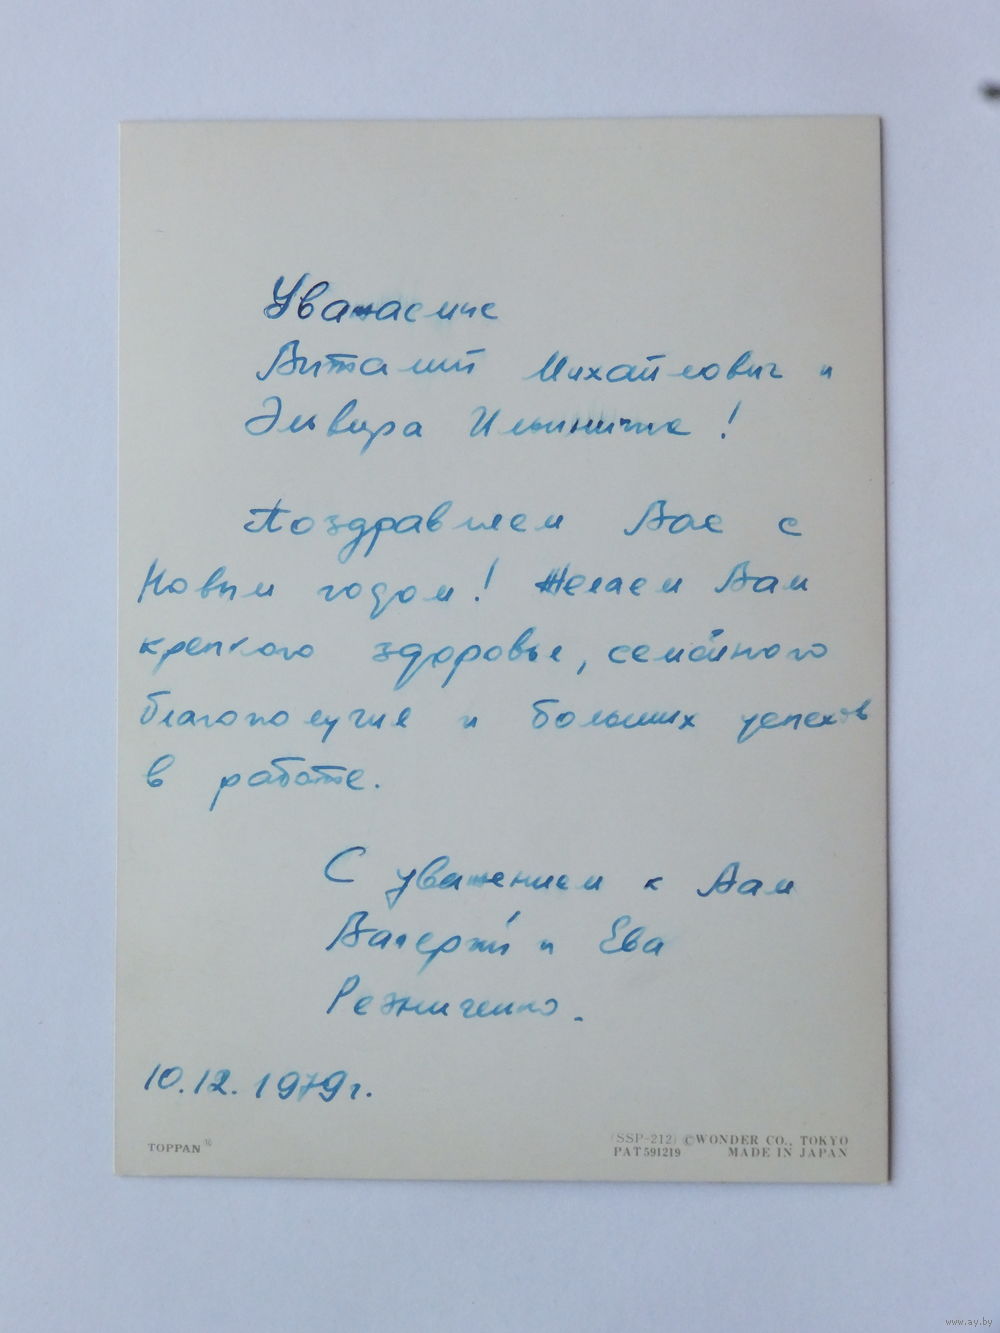 Уважаемые
Виталий Михайлович и
Эльвира Ильинична!
Поздравляем Вас с
Новым годом! Желаем Вам
крепкого здоровья, семейного
благополучия и больших успехов
в работе.
С уважением к Вам
Валерий и Ева
Резниченко.
10.12.1979г.
TOPPAN
(SSP-212) ©WONDER CO., TOKYO
PAT 591219 MADE IN JAPAN
www.ay.by